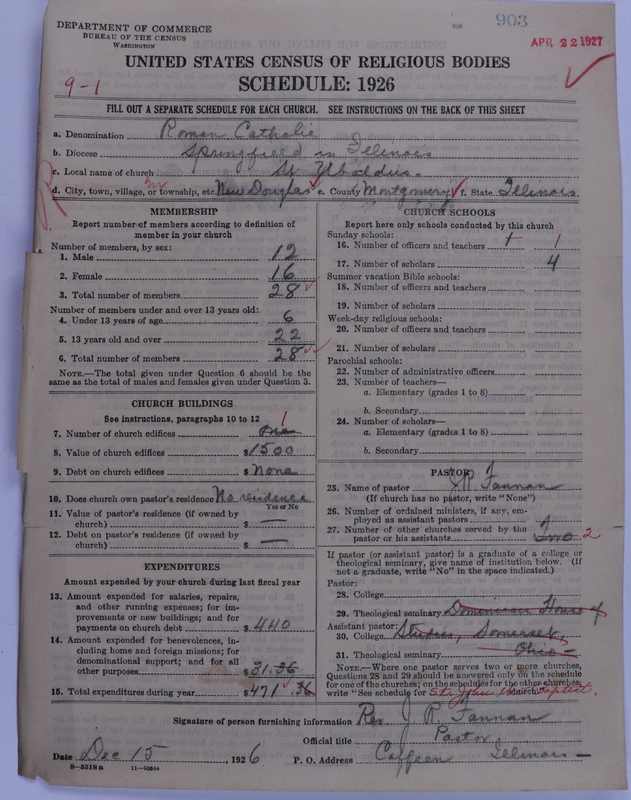 903
APR 22 1927
DEPARTMENT OF COMMERCE
BUREAU OF THE CENSUS
WASHINGTON
UNITED STATES CENSUS OF RELIGIOUS BODIES
SCHEDULE: 1926
9-1
FILL OUT A SEPARATE SCHEDULE FOR EACH CHURCH. SEE INSTRUCTIONS ON THE BACK OF THIS SHEET
a. Denomination Roman Catholic
b. Diocese Springfield in Illinois
c. Local name of church St. Ubaldus.
d. City, town, village, or township, etc. New Douglas e. County Montgomery f. State Illinois.
MEMBERSHIP
Report number of members according to definition of
member in your church
Number of members, by sex:
1. Male 12
2. Female 16
3. Total number of members 28
Number of members under and over 13 years old:
4. Under 13 years of age 6
5. 13 years old and over 22
6. Total number of members 28
NOTE.—The total given under Question 6 should be
same as the total of males and females given under Question 3.
CHURCH BUILDINGS
See instructions, paragraphs 10 to 12
7. Number of church edifices One 1
8. Value of church edifices $1500
9. Debt on church edifices $ None
10. Does church own pastor's residence No residence
Yes or No
11. Value of pastor's residence (if owned by
church) $ —
12. Debt on pastor's residence (if owned by
church) $ —
EXPENDITURES
Amount expended by your church during last fiscal year
13. Amount expended for salaries, repairs,
and other running expenses; for im-
provements or new buildings; and for
payments on church debt $ 440
14. Amount expended for benevolences, in-
cluding home and foreign missions; for
denominational support; and for all
other purposes $ 31.36
15. Total expenditures during year $ 471.36
CHURCH SCHOOLS
Report here only schools conducted by this church
Sunday schools:
16. Number of officers and teachers 1 1
17. Number of scholars 4
Summer vacation Bible schools:
18. Number of officers and teachers
19. Number of scholars
Week-day religious schools:
20. Number of officers and teachers
21. Number of scholars
Parochial schools:
22. Number of administrative officers
23. Number of teachers—
a. Elementary (grades 1 to 8)
b. Secondary
24. Number of scholars—
a. Elementary (grades 1 to 8)
b. Secondary
PASTOR
25. Name of pastor J. R. Fannan
(If church has no pastor, write "None")
26. Number of ordained ministers, if any, em-
ployed as assistant pastors
27. Number of other churches served by the
pastor or his assistants Two 2
If pastor (or assistant pastor) is a graduate of a college or
theological seminary, give name of institution below. (If
not a graduate, write "No" in the space indicated.)
Pastor:
28. College
29. Theological seminary Dominican House of
Assistant pastor:
30. College Studies, Somerset,
31. Theological seminary Ohio —
NOTE.—Where one pastor serves two or more churches,
Questions 28 and 29 should be answered only on the schedule
for one of the churches; on the schedules for the other churches
write "See schedule for St. John the Baptist church."
Signature of person furnishing information Rev. J. R. Fannan
Official title Pastor
Date Dec 15, 1926 P. O. Address Coffeen Illinois —
8-5518a 11-9054a